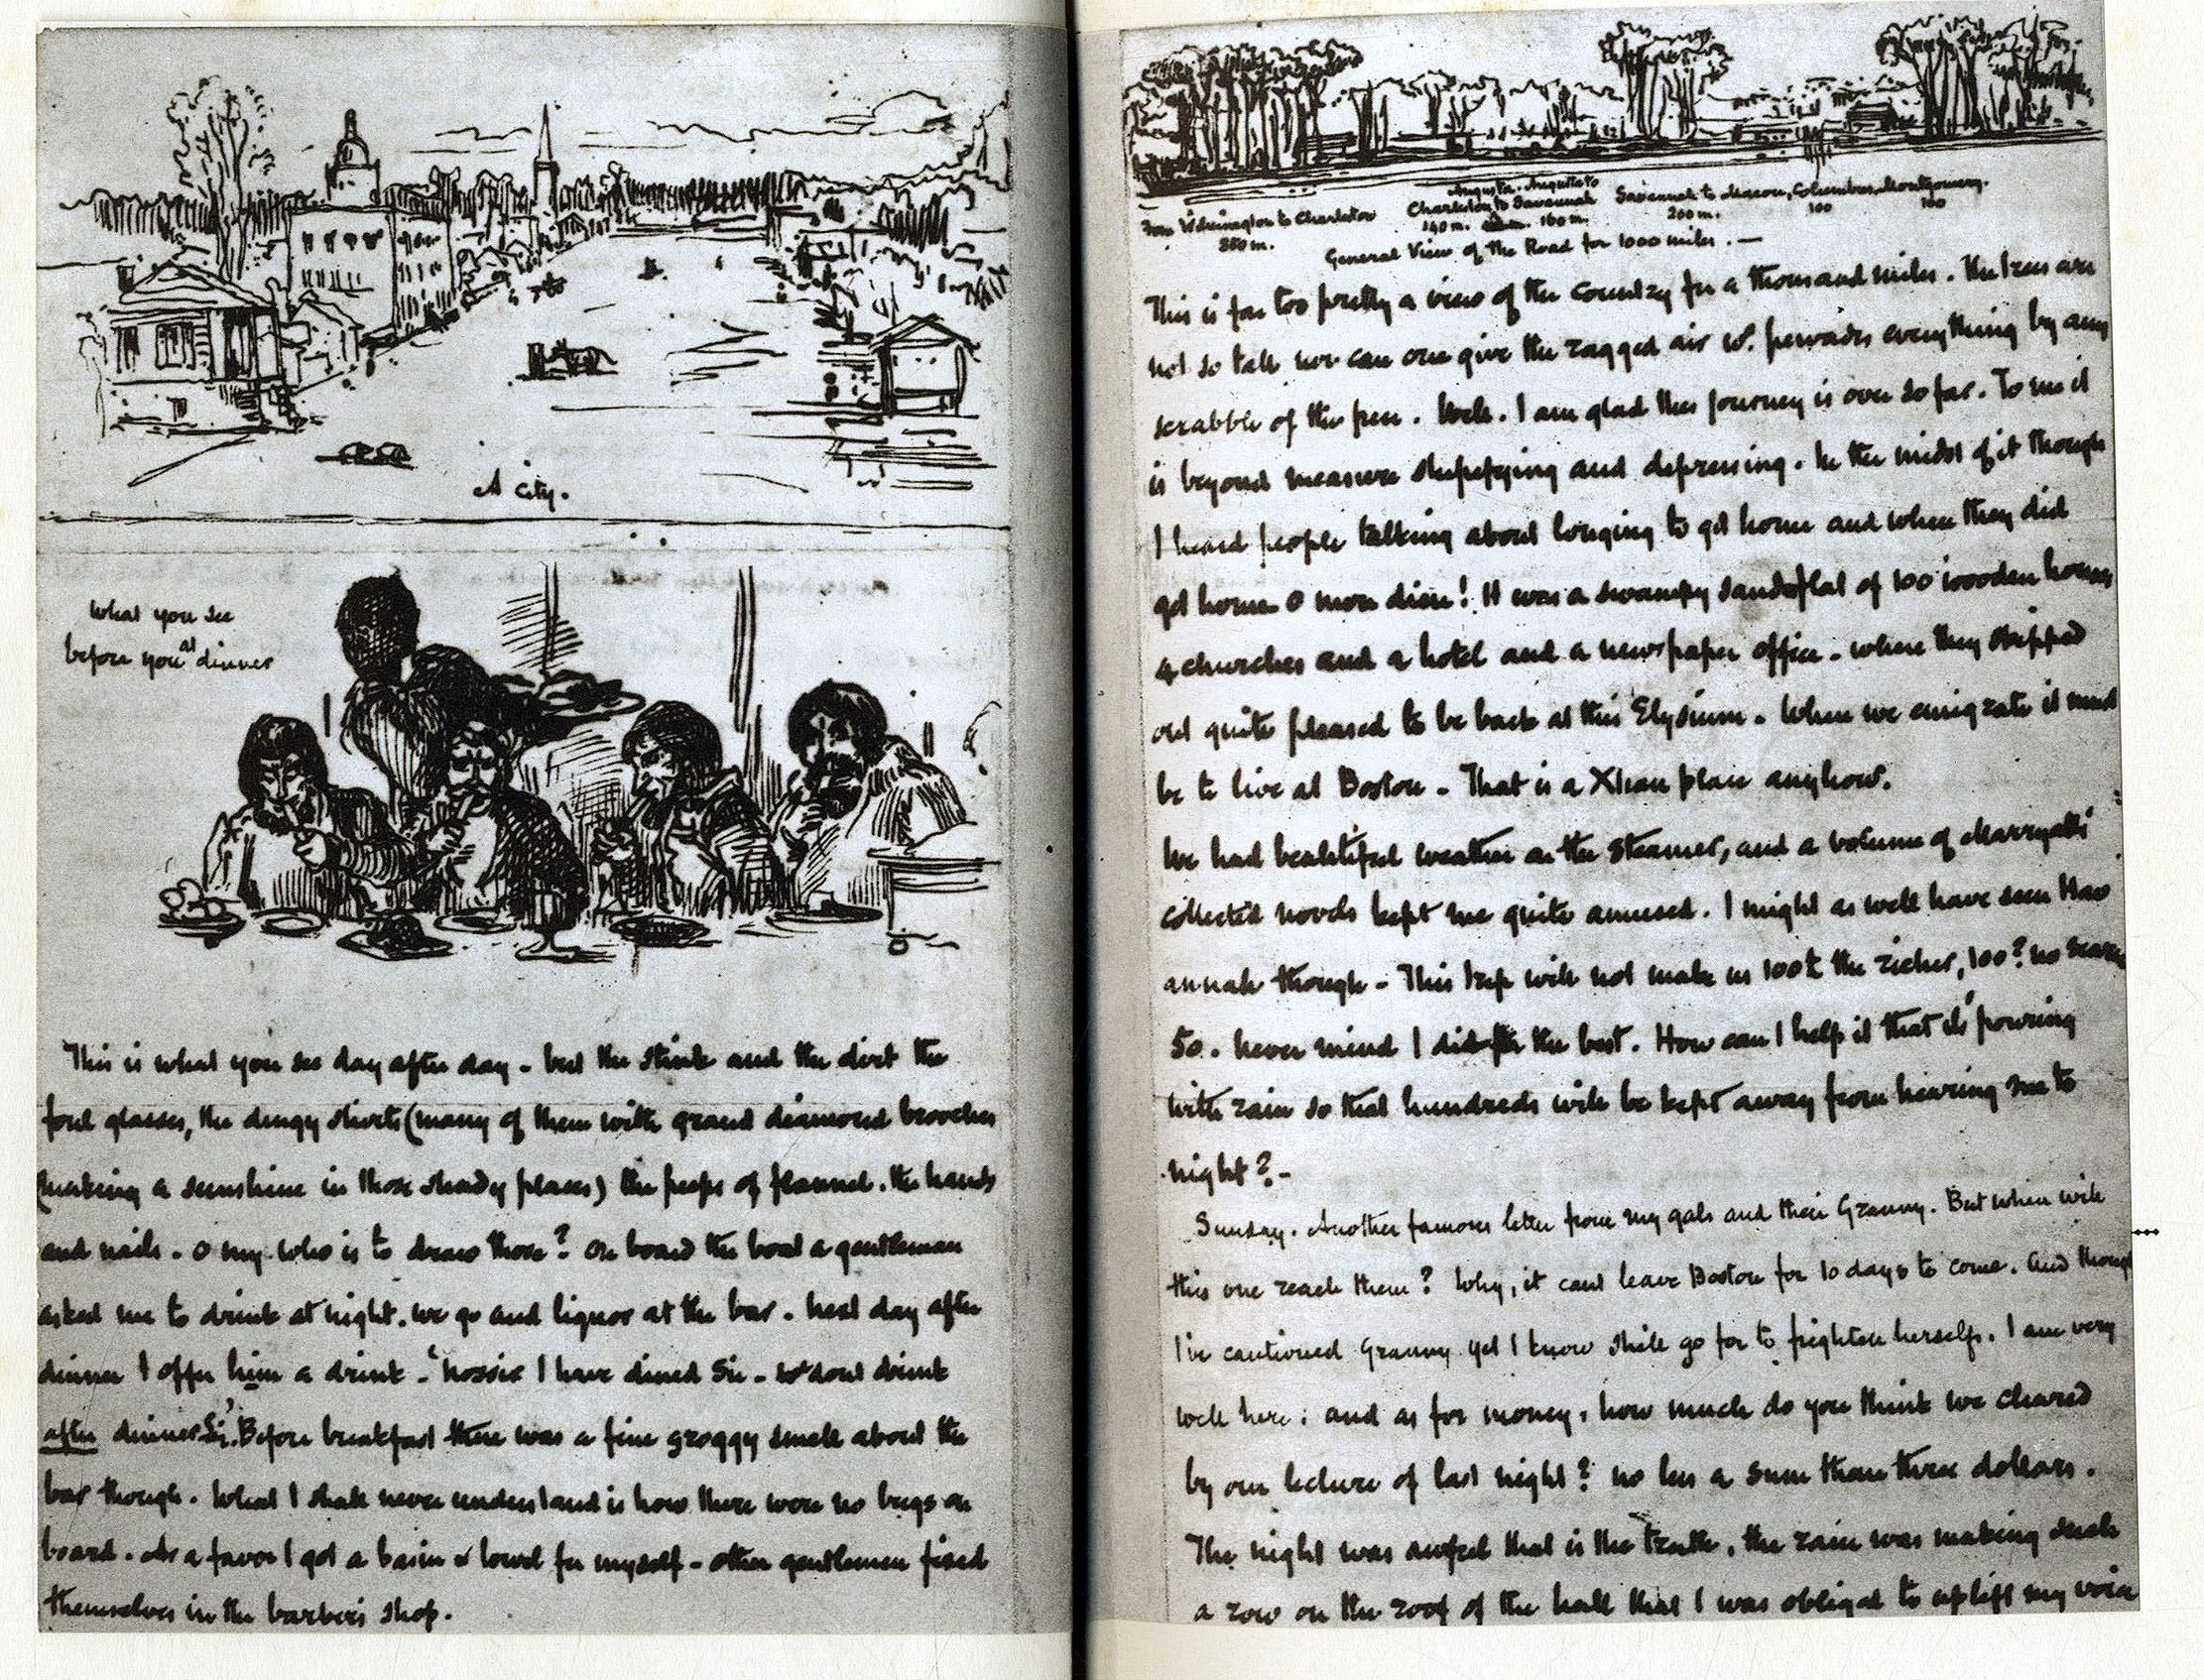 A City.
What you see
before you at dinner
This is what you see day after day - but the stink and the dirt the
foul glasses, the dingy shirts (many of them with grand diamond brooches
(making a sunshine in those shady places) the peeps of flannel. the hands
and nails - O my. who is to draw those? On board the boat a gentleman
asked me to drink at night. we go and liquor at the bar. next day after
dinner I offer him a drink - 'Nossir I have dined Sir - we dont drink
after dinner Sir.' Before breakfast there was a fine groggy smell about the
bar though. What I shall never understand is how there were no bugs on
board. As a favor I got a basin & towel for myself - other gentlemen fixed
themselves in the barber's shop.
From Wilmington to Charleston
350 m.
Augusta. Augusta to
Charleston to Savannah
140 m. 160 m.
Savannah to Macon, Columbus, Montgomery.
200 m. 100 100
General View of the Road for 1000 miles. —
This is far too pretty a view of the country for a thousand miles. The trees are
not so tall nor can one give the ragged air wh. pervades everything by any
scrabble of the pen. Well. I am glad this journey is over so far. To me it
is beyond measure stupefying and depressing. In the midst of it though
I heard people talking about longing to get home and when they did
get home O mon dieu! It was a swampy sandflat of 100 wooden houses
4 churches and a hotel and a newspaper office - where they stepped
out quite pleased to be back at this Elysium. When we emigrate it must
be to live at Boston - That is a Xtian place anyhow.
We had beautiful weather on the steamer, and a volume of Marryatt's
collected novels kept me quite amused. I might as well have seen Hav
annah though - This trip will not make us 100£ the richer, 100? no scarce
50. Never mind I did for the best. How can I help it that it's pouring
with rain so that hundreds will be kept away from hearing me to
night? -
Sunday. Another famous letter from my gals and their Granny. But when will
this one reach them? Why, it cant leave Boston for 10 days to come. And though
I've cautioned Granny yet I know shell go for to frighten herself. I am very
well here: and as for money, how much do you think we cleared
by our lecture of last night? no less a sum than three dollars.
The night was awful that is the truth, the rain was making such
a row on the roof of the hall that I was obliged to uplift my voice